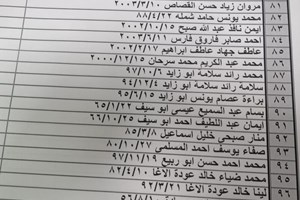 مروان زياد حسن القصاص ٢٠٠٣/٣/١٠ ٨١
محمد يونس حامد شمله ٨٨/٤/٢٢ ٨٢
ايمن نافذ عبد الله صبح ٢٠٠٢/٢/٢١ ٨٣
احمد صابر فاروق فارس ٢٠٠٢/٦/١١ ٨٤
عاطف جهاد عاطف ابراهيم ٢٠٠٢/٢/١٧ ٨٥
محمد عبد الكريم محمد سرحان ٢٠٠٠/١٢/١٥ ٨٦
محمد رائد سلامه ابو زايد ٩٧/١٠/٦ ٨٧
سلامه رائد سلامه ابو زايد ٩٤/١٢/٤ ٨٨
براءة عصام يونس ابو زايد ٩٥/٦/١٥ ٨٩
بسام عبد السميع عيسى ابو سيف ٦٥/١/٢٢ ٩٠
ايمان عبد اللطيف احمد ابو سيف ٦٦/١٠/٢٥ ٩١
منار صبحي خليل اسماعيل ٨٥/٣/٨ ٩٢
صفاء يوسف احمد المسلمي ٨٠/١٠/٢٧ ٩٣
محمد احمد حسن ابو ربيع ٩٧/١١/١٩ ٩٤
محمد ضياء خالد عودة الاغا ٨٢/٤/١٠ ٩٥
لينا خالد عودة الاغا ٩٢/٣/٢١ ٩٦